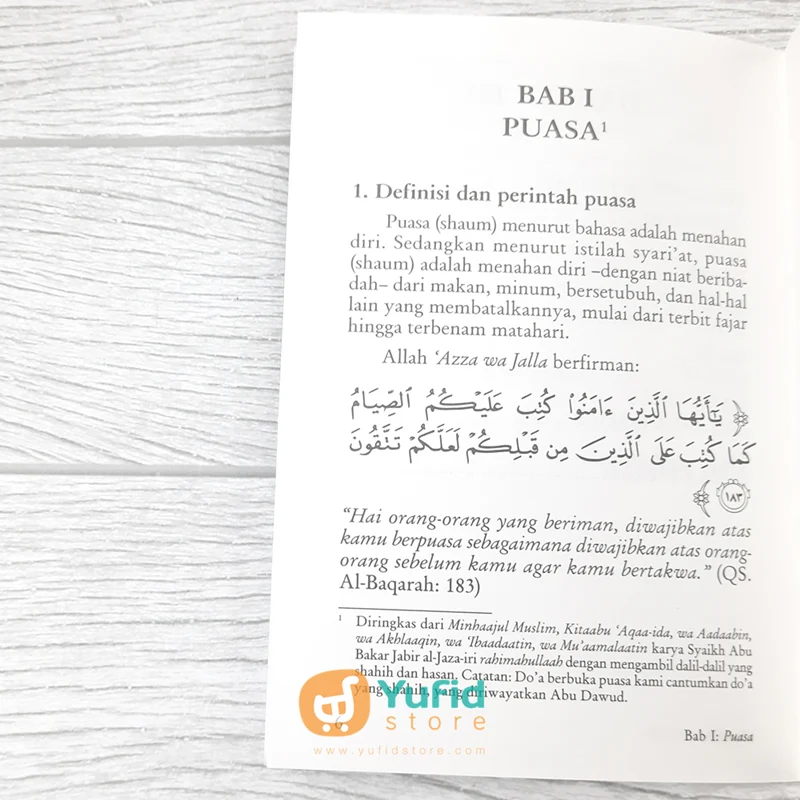 BAB I
PUASA¹
1. Definisi dan perintah puasa
Puasa (shaum) menurut bahasa adalah menahan
diri. Sedangkan menurut istilah syari'at, puasa
(shaum) adalah menahan diri –dengan niat beriba-
dah– dari makan, minum, bersetubuh, dan hal-hal
lain yang membatalkannya, mulai dari terbit fajar
hingga terbenam matahari.
Allah ‘Azza wa Jalla berfirman:
﴿ يَٰٓأَيُّهَا ٱلَّذِينَ ءَامَنُوا۟ كُتِبَ عَلَيْكُمُ ٱلصِّيَامُ
كَمَا كُتِبَ عَلَى ٱلَّذِينَ مِن قَبْلِكُمْ لَعَلَّكُمْ تَتَّقُونَ
١٨٣ ﴾
“Hai orang-orang yang beriman, diwajibkan atas
kamu berpuasa sebagaimana diwajibkan atas orang-
orang sebelum kamu agar kamu bertakwa.” (QS.
Al-Baqarah: 183)
¹ Diringkas dari Minhaajul Muslim, Kitaabu ‘Aqaa-ida, wa Aadaabin,
wa Akhlaaqin, wa ‘Ibaadaatin, wa Mu’aamalaatin karya Syaikh Abu
Bakar Jabir al-Jaza-iri rahimahullaah dengan mengambil dalil-dalil yang
shahih dan hasan. Catatan: Do’a berbuka puasa kami cantumkan do’a
yang shahih, yang diriwayatkan Abu Dawud.
6
Bab I: Puasa
Yufid
store
www.yufidstore.com